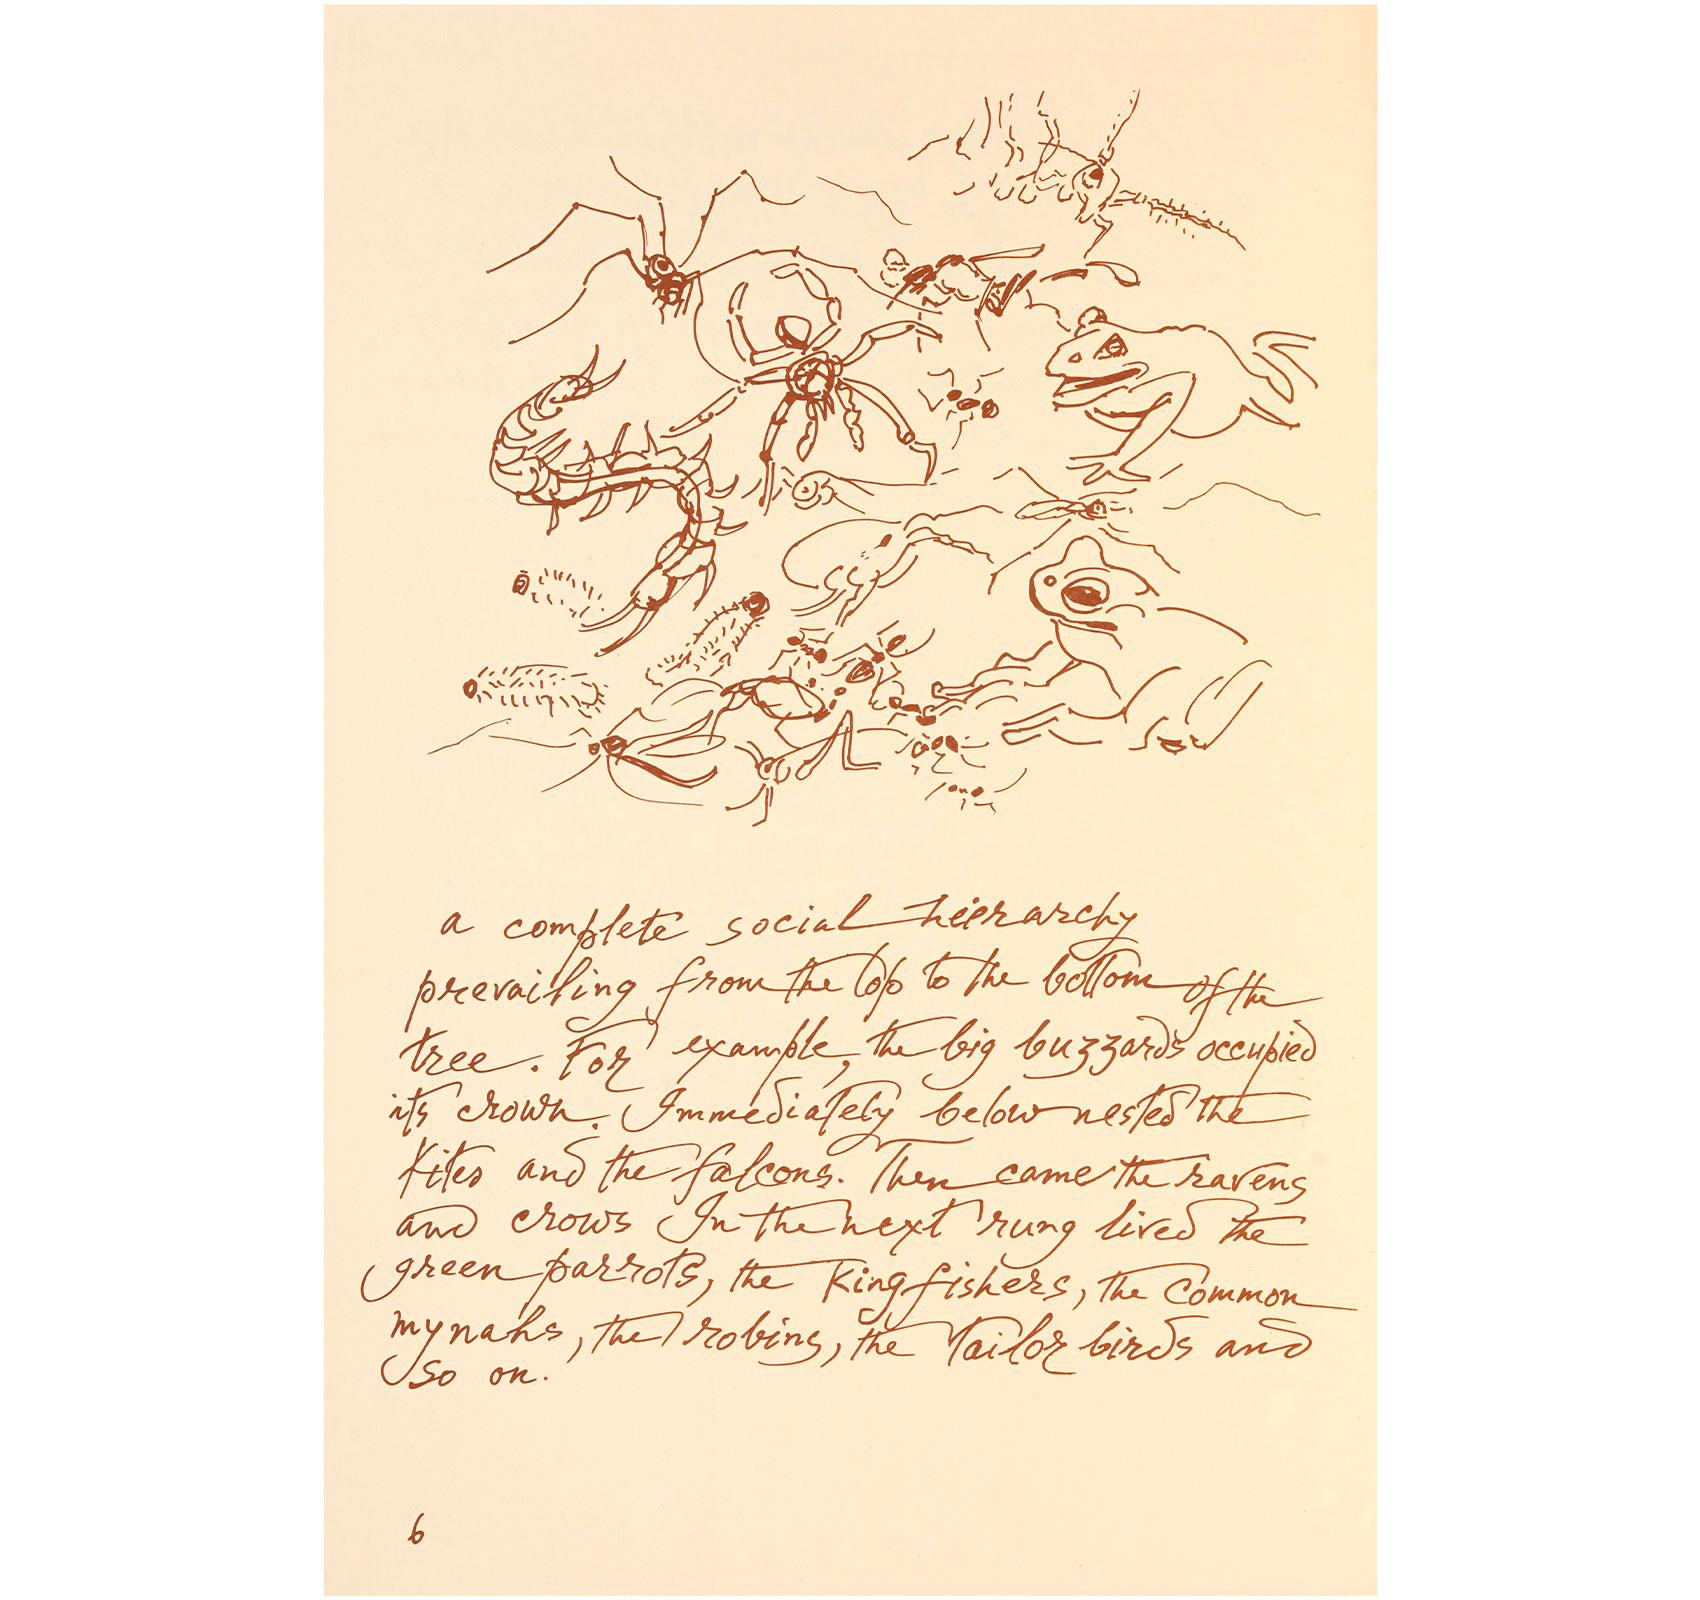 a complete social hierarchy
prevailing from the top to the bottom of the
tree. For example, the big buzzards occupied
its crown. Immediately below nested the
Kites and the falcons. Then came the ravens
and crows In the next rung lived the
green parrots, the Kingfishers, the common
mynahs, the robins, the Tailor birds and
so on.
6